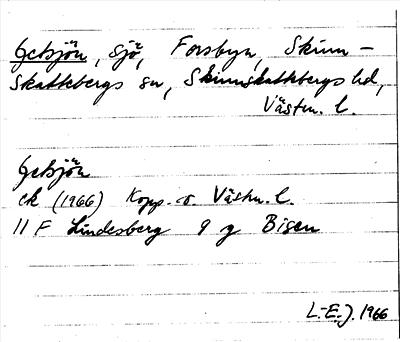 Getsjön, sjö, Forsbyn, Skinn-
skattebergs sn, Skinnskattebergs hd,
Västm. l.
Getsjön
ek (1966) Kopp. o. Västm. l.
11 F Lindesberg 9 g Bisen
L.-E. J. 1966